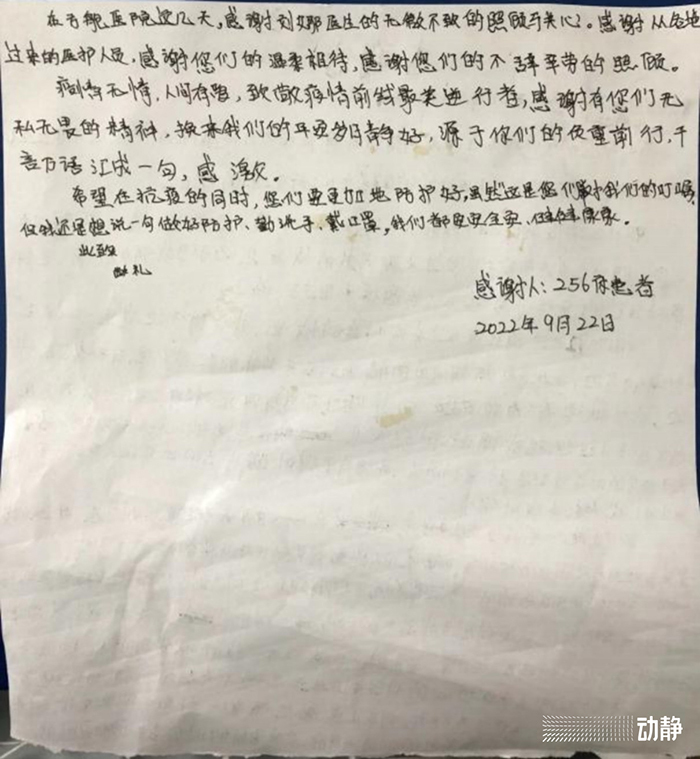 在方舱医院这几天,感谢刘娜医生的无微不致的照顾于关心。感谢从各地
过来的医护人员,感谢您们的温柔相待,感谢您们的不辞辛劳的照顾。
病情无情,人间有爱,致敬疫情前线最美逆行者,感谢有您们无
私无畏的精神,换来我们的平安岁月静好,源于你们的负重前行,千
言万语汇成一句,感激。
希望在抗疫的同时,您们要更加地防护好,虽然这是您们对我们的叮嘱,
但我还是想说一句做好防护、勤洗手、戴口罩,我们都要安全安、健健康康。
此致
敬礼
感谢人:256床患者
2022年9月22日
动静